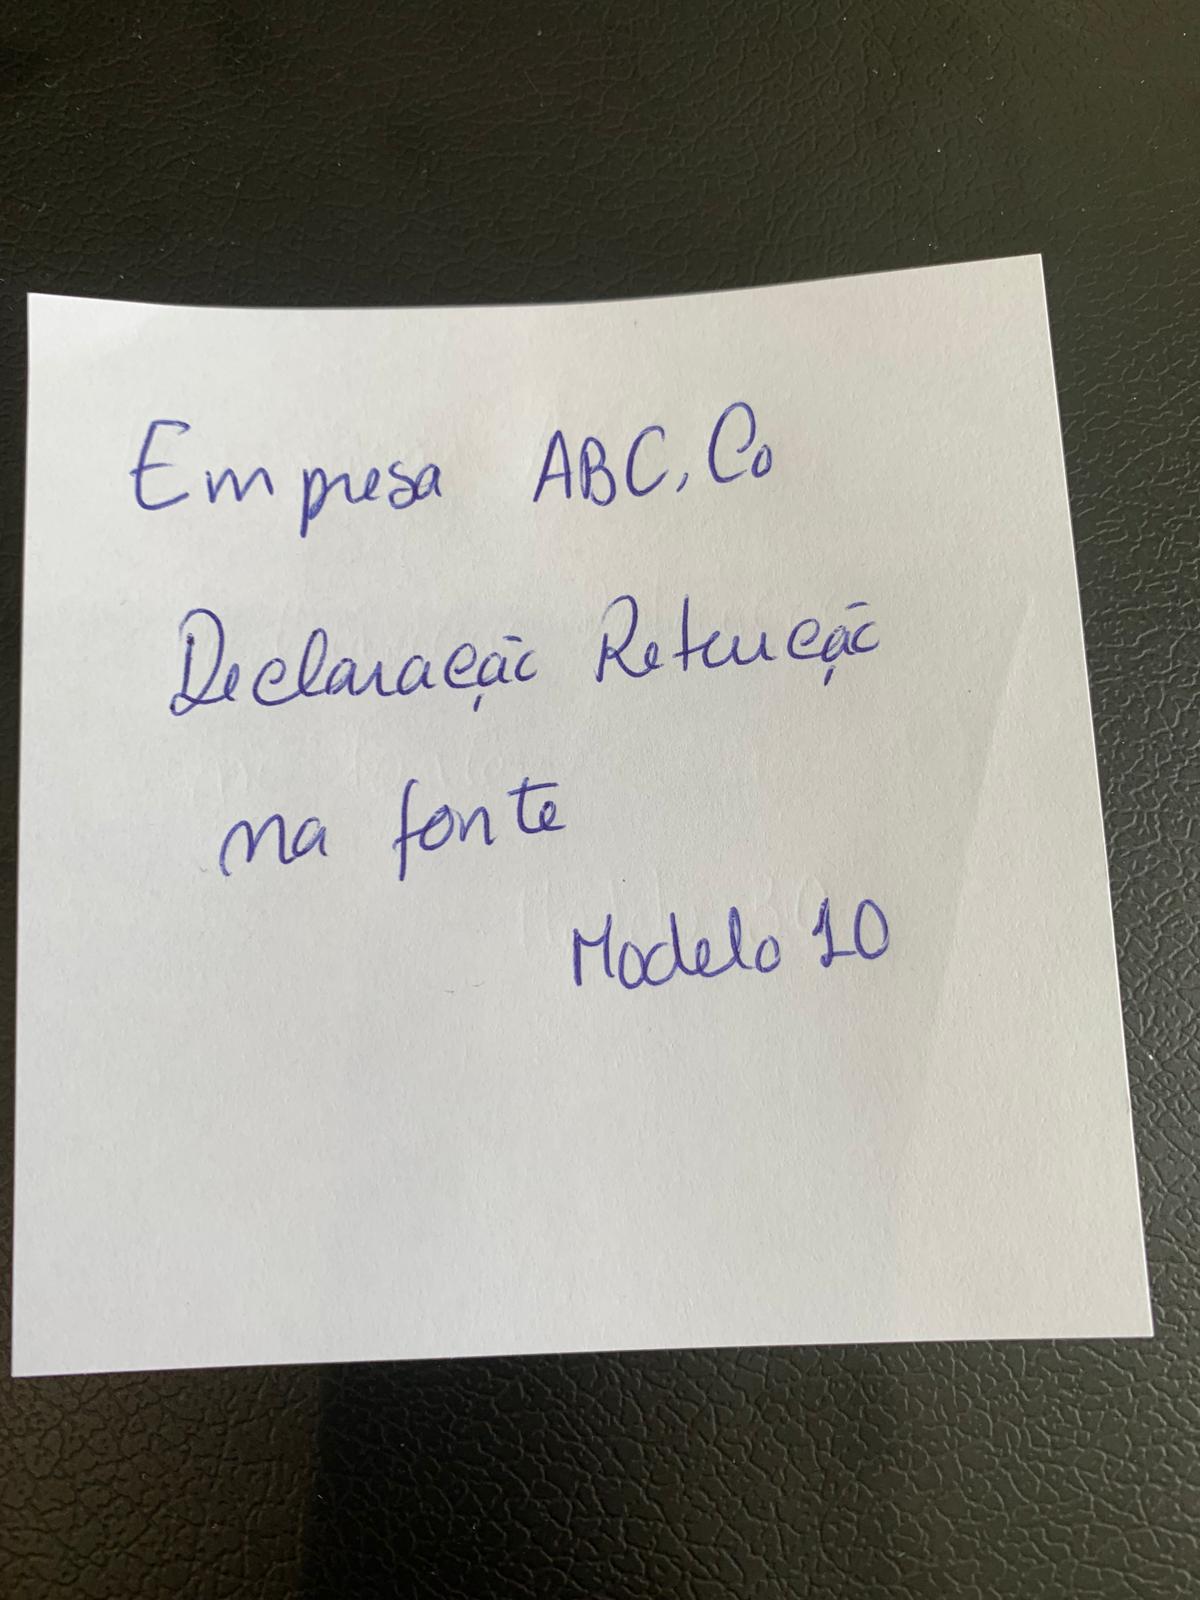 Empresa ABC, Co
Declaração Retenção
na fonte
Modelo 10